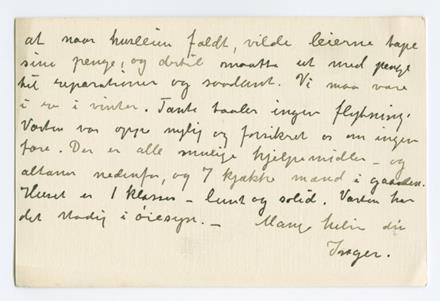 at naar husleien faldt, vilde leierne tape
sine penge, og dertil maatte ut med penge
til reparationer og saadant. Vi maa være
i ro i vinter. Tante taaler ingen flytning.
Verten var oppe nylig og forsikret os om ingen
fare. Der er alle mulige hjelpemidler – og
altaner nedenfor, og 7 kjække mænd i gaarden.
Huset er 1 klasses – lunt og solid. Verten har
det stadig i øiesyn. – Mange hilsn din
Inger.